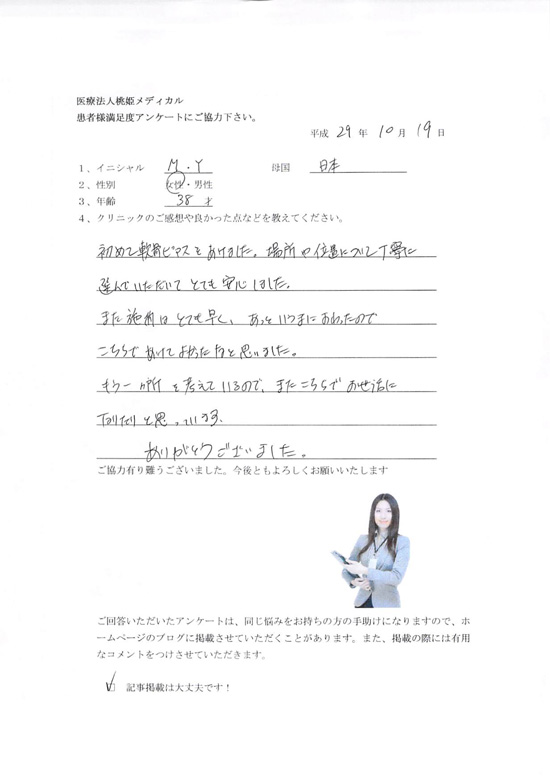 医療法人桃姫メディカル
患者様満足度アンケートにご協力下さい。
平成 29 年 10 月 19 日
1、イニシャル M・Y 母国 日本
2、性別 女性・男性
3、年齢 38 才
4、クリニックのご感想や良かった点などを教えてください。
初めて軟骨ピアスをあけました。場所や位置について丁寧に
選んでいただいてとても安心しました。
また施術はとても早く、あっというまにおわったので
こちらであけてよかったなと思いました。
もう一ヶ所を考えているので、またこちらでお世話に
なりたいと思っています。
ありがとうございました。
ご協力有り難うございました。今後ともよろしくお願いいたします
ご回答いただいたアンケートは、同じ悩みをお持ちの方の手助けになりますので、ホ
ームページのブログに掲載させていただくことがあります。また、掲載の際には有用
なコメントをつけさせていただきます。
記事掲載は大丈夫です！